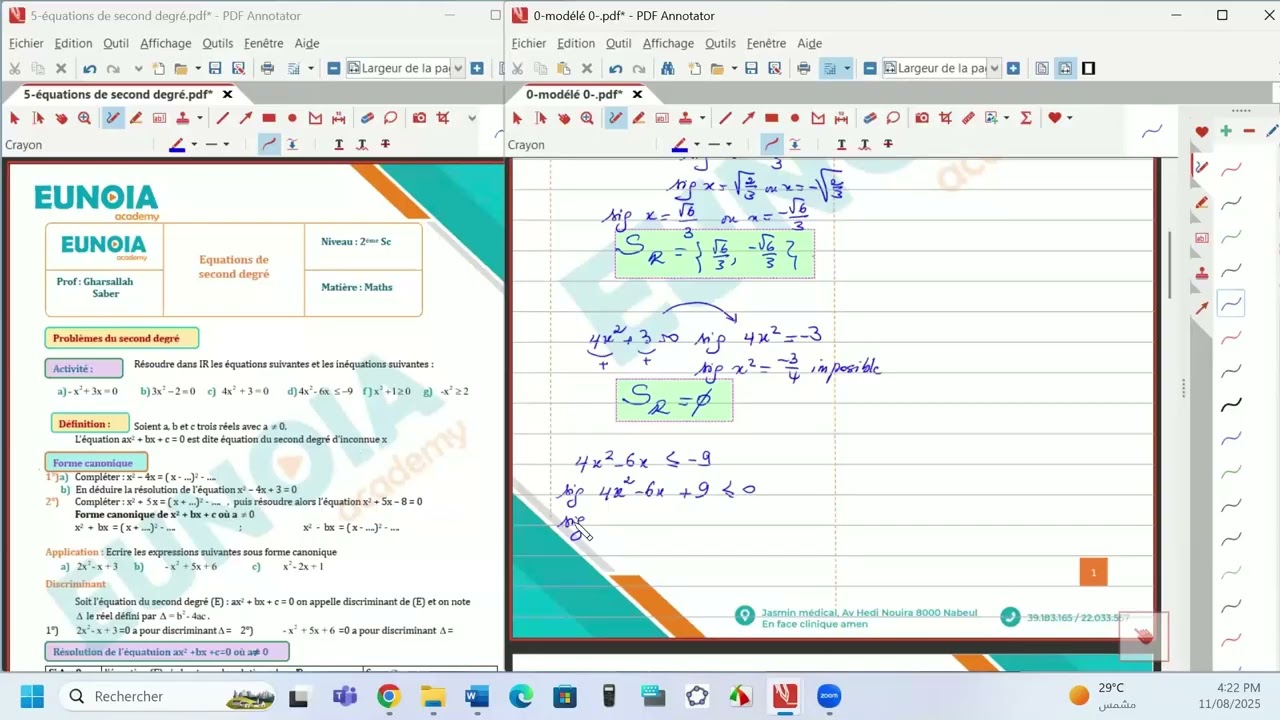 5-équations de second degré.pdf* - PDF Annotator
Fichier Edition Outil Affichage Outils Fenêtre Aide
Largeur de la pa
5-équations de second degré.pdf*
Crayon
EUNOIA
academy
EUNOIA
academy
Equations de
second degré
Niveau : 2ème Sc
Prof : Gharsallah
Saber
Matière : Maths
Problèmes du second degré
Activité : Résoudre dans IR les équations suivantes et les inéquations suivantes :
a) - x² + 3x = 0 b) 3x² - 2 = 0 c) 4x² + 3 = 0 d) 4x² - 6x ≤ -9 f) x² +1≥ 0 g) -x² ≥ 2
Définition : Soient a, b et c trois réels avec a ≠ 0.
L'équation ax² + bx + c = 0 est dite équation du second degré d'inconnue x
Forme canonique
1°)a) Compléter : x² – 4x = ( x - ...)² - ....
b) En déduire la résolution de l'équation x² – 4x + 3 = 0
2°) Compléter : x² + 5x = ( x + ...)² - .... , puis résoudre alors l'équation x² + 5x – 8 = 0
Forme canonique de x² + bx + c où a ≠ 0
x² + bx = ( x + ....)² - .... ; x² - bx = ( x - ....)² - ....
Application : Ecrire les expressions suivantes sous forme canonique
a) 2x² - x + 3 b) - x² + 5x + 6 c) x² - 2x + 1
Discriminant
Soit l'équation du second degré (E) : ax² + bx + c = 0 on appelle discriminant de (E) et on note
Δ le réel défini par Δ = b² - 4ac .
1°) 2x² - x + 3 =0 a pour discriminant Δ = 2°) - x² + 5x + 6 =0 a pour discriminant Δ =
Résolution de l'équatuion ax² +bx +c=0 où a≠ 0
0-modélé 0-.pdf* - PDF Annotator
Fichier Edition Outil Affichage Outils Fenêtre Aide
Largeur de la pa
0-modélé 0-.pdf*
Crayon
3
sig x = √(2/3) ou x = -√(2/3)
sig x = √6/3 ou x = -√6/3
S_IR = { √6/3 , -√6/3 }
4x² + 3 = 0 sig 4x² = -3
+ +
sig x² = -3/4 imposible
S_IR = ∅
4x² - 6x ≤ -9
sig 4x² - 6x + 9 ≤ 0
sig
1
Jasmin médical, Av Hedi Nouira 8000 Nabeul
En face clinique amen
39.183.165 / 22.033.557
Rechercher
zoom
29°C
مشمس
4:22 PM
11/08/2025